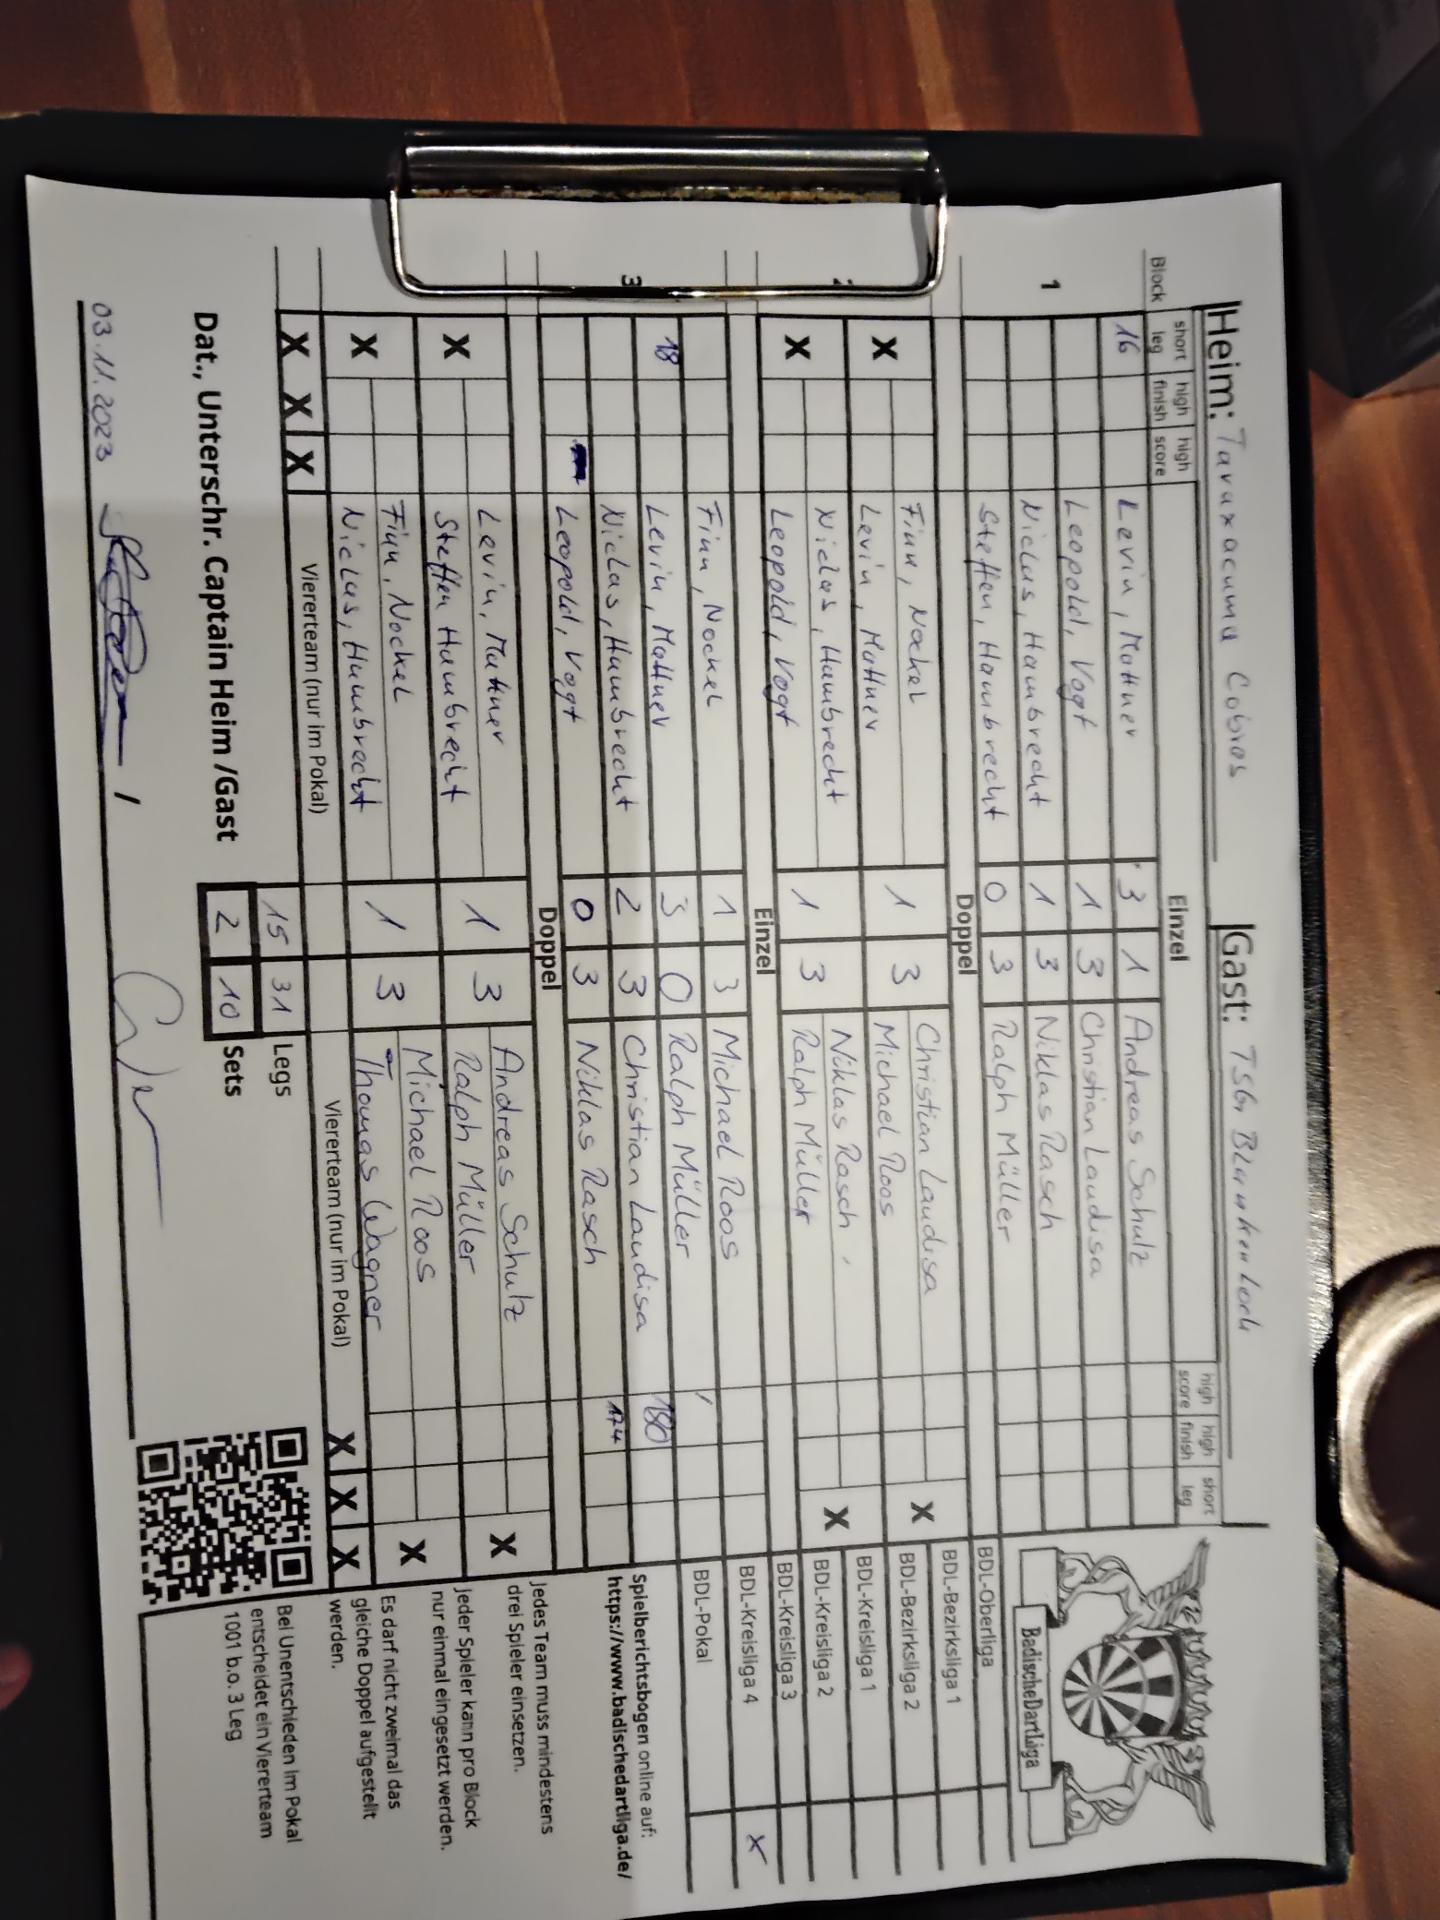 Heim: Taraxacuma Cobras Gast: TSG, Blankenloch
Block short leg high finish high score Einzel high score high finish short leg
1
16 Levin, Mattner 3 1 Andreas Schulz
Leopold, Vogt 1 3 Christian Laudisa
Niclas, Hambrecht 1 3 Niklas Rasch
Steffen, Hambrecht 0 3 Ralph Müller
Doppel
Finn, Nockel 1 3 Christian Laudisa
X Levin, Mattner Michael Roos X
Niclas, Hambrecht 1 3 Niklas Rasch
X Leopold, Vogt Ralph Müller X
Einzel
3
Finn, Nockel 1 3 Michael Roos
18 Levin, Mattner 3 0 Ralph Müller 180
Niclas, Hambrecht 2 3 Christian Laudisa 174
Leopold, Vogt 0 3 Niklas Rasch
Doppel
Levin, Mattner 1 3 Andreas Schulz
X Steffen Hambrecht Ralph Müller X
Finn, Nockel 1 3 Michael Roos
X Niclas, Hambrecht Thomas Wagner X
X X X Viererteam (nur im Pokal) Viererteam (nur im Pokal) X X X
15 31 Legs
2 10 Sets
Dat., Unterschr. Captain Heim /Gast
03.11.2023 /
BadischeDartLiga
BDL-Oberliga
BDL-Bezirksliga 1
BDL-Bezirksliga 2
BDL-Kreisliga 1
BDL-Kreisliga 2
BDL-Kreisliga 3
BDL-Kreisliga 4 x
BDL-Pokal
Spielberichtsbogen online auf:
https://www.badischedartliga.de/
Jedes Team muss mindestens
drei Spieler einsetzen.
Jeder Spieler kann pro Block
nur einmal eingesetzt werden.
Es darf nicht zweimal das
gleiche Doppel aufgestellt
werden.
Bei Unentschieden im Pokal
entscheidet ein Viererteam
1001 b.o. 3 Leg